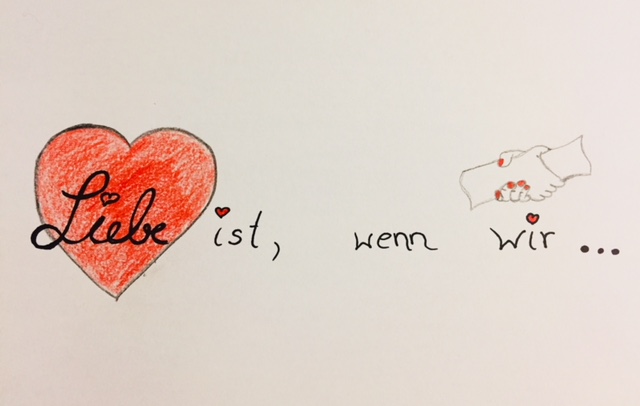 Liebe ist, wenn wir ...